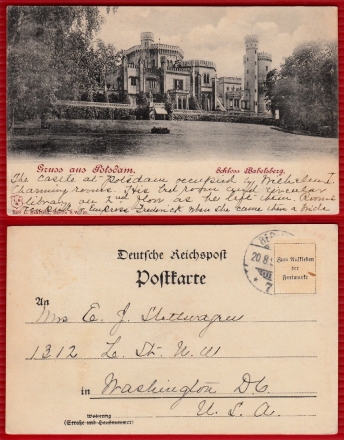 Gruss aus Potsdam. Schloss Babelsberg.
The castle at Potsdam occupied by Wilhelm I.
Charming rooms. His bed room and circular
library on 2nd floor as he left them. Rooms
Empress Frederick when she came then a bride
Deutsche Reichspost
Postkarte
Zum Aufkleben
der
Freimarke
20.8
7
An
Mrs E. J.
1312 L. St. N. W
in Washington D.C.
Wohnung
(Straße und Hausnummer)
U. S. A.